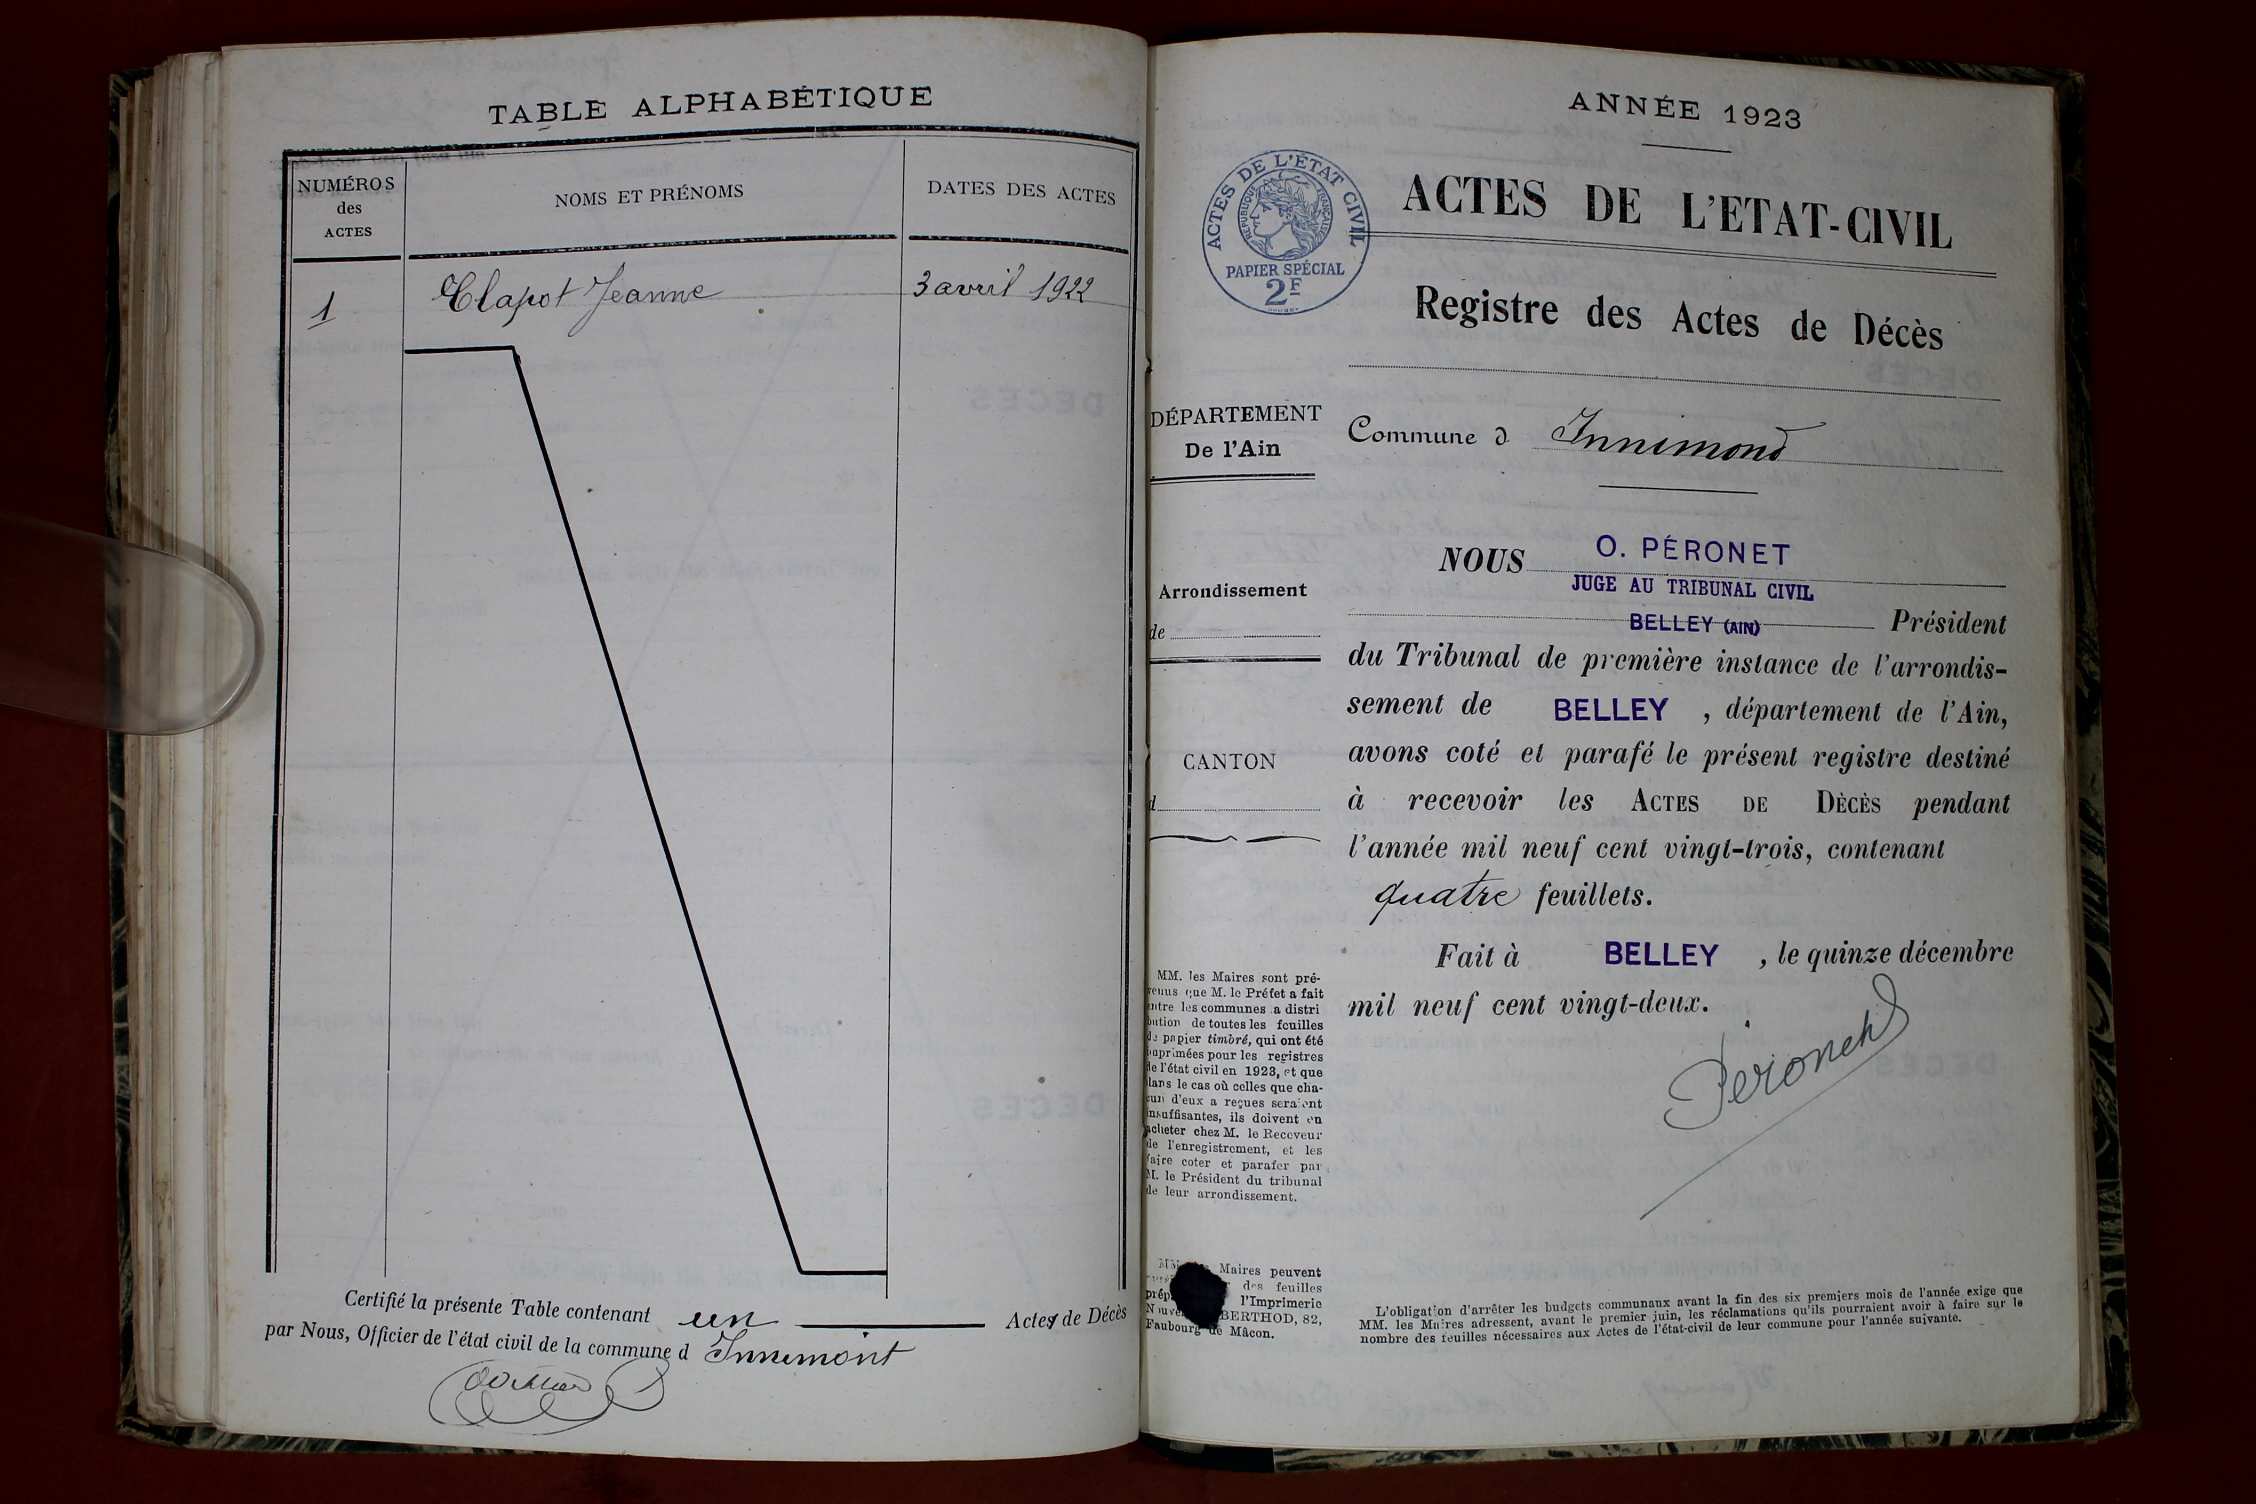 TABLE ALPHABÉTIQUE
NUMÉROS
des
ACTES
NOMS ET PRÉNOMS
DATES DES ACTES
1
Clapot Jeanne
3 avril 1922
Certifié la présente Table contenant un Actes de Décès
par Nous, Officier de l'état civil de la commune d Innimont
ANNÉE 1923
ACTES DE L'ÉTAT CIVIL
RÉPUBLIQUE FRANÇAISE
PAPIER SPÉCIAL
2F
ACTES DE L'ETAT-CIVIL
Registre des Actes de Décès
DÉPARTEMENT
De l'Ain
Commune d Innimond
Arrondissement
de
CANTON
d
NOUS O. PÉRONET
JUGE AU TRIBUNAL CIVIL
BELLEY (AIN) Président
du Tribunal de première instance de l'arrondis-
sement de BELLEY , département de l'Ain,
avons coté et parafé le présent registre destiné
à recevoir les ACTES DE DÈCÈS pendant
l'année mil neuf cent vingt-trois, contenant
quatre feuillets.
Fait à BELLEY , le quinze décembre
mil neuf cent vingt-deux.
Péronet
MM. les Maires sont pré-
venus que M. le Préfet a fait
entre les communes a distri
bution de toutes les feuilles
de papier timbré, qui ont été
imprimées pour les registres
de l'état civil en 1923, et que
dans le cas où celles que cha-
cun d'eux a reçues seraient
insuffisantes, ils doivent en
acheter chez M. le Receveur
de l'enregistrement, et les
faire coter et parafer par
M. le Président du tribunal
de leur arrondissement.
Maires peuvent
des feuilles
l'Imprimerie
BERTHOD, 82,
Faubourg de Mâcon.
L'obligation d'arrêter les budgets communaux avant la fin des six premiers mois de l'année exige que
MM. les Maires adressent, avant le premier juin, les réclamations qu'ils pourraient avoir à faire sur le
nombre des feuilles nécessaires aux Actes de l'état-civil de leur commune pour l'année suivante.